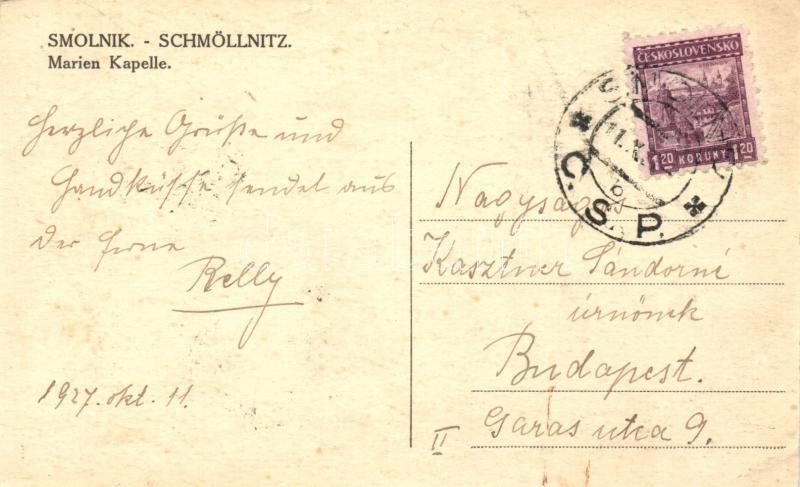 SMOLNIK. - SCHMÖLLNITZ.
Marien Kapelle.
Herzliche Grüße und
Handküsse sendet aus
der Ferne
Relly
1927. okt. 11.
ČESKOSLOVENSKO
1.20 KORUNY 1.20
11.X.
b
Č. S. P.
Nagyságos
Kasztner Sándorné
úrnőnek
Budapest.
II Garas utca 9.